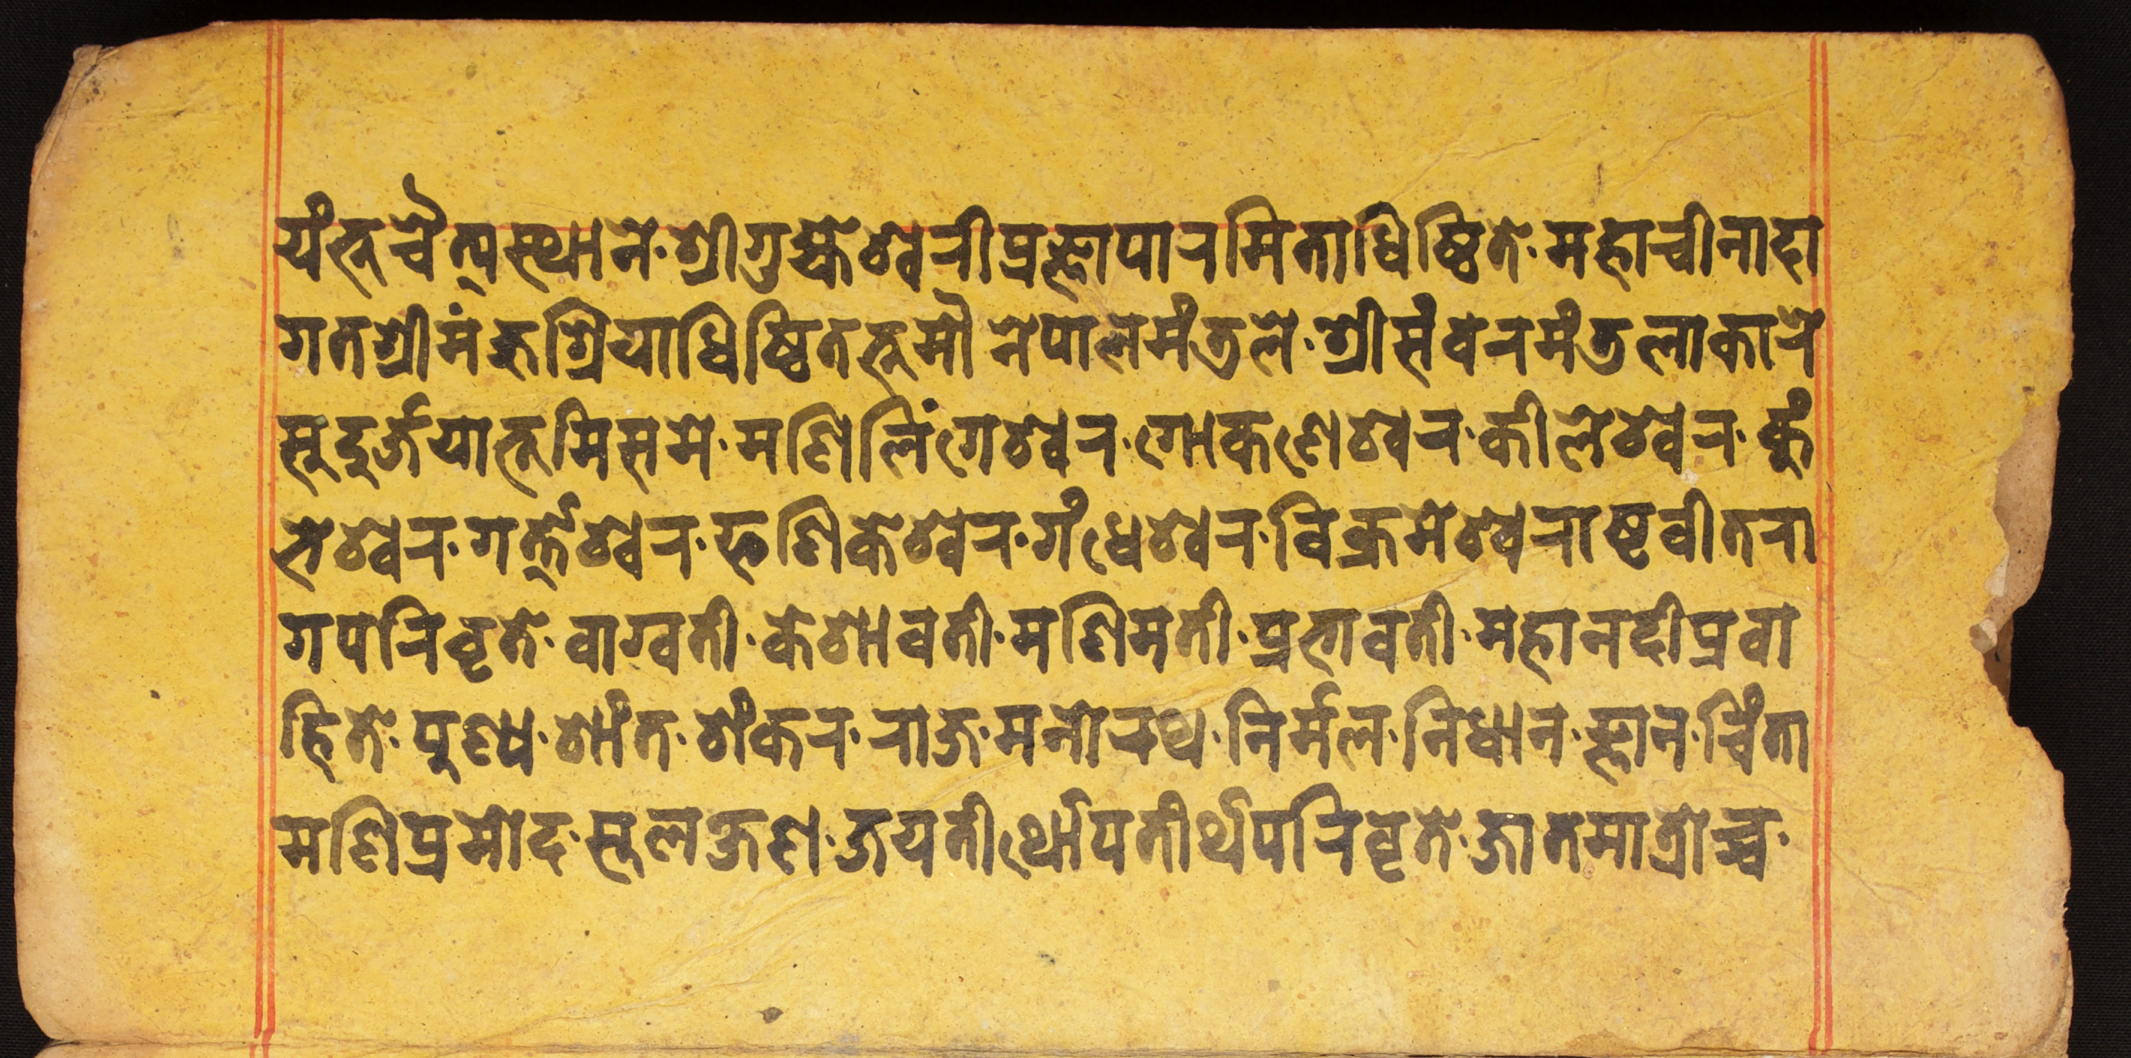 यंभूचैत्यस्थाने·श्रीगुह्येश्वरीप्रज्ञापारमिताधिष्ठिते·महाचीनादा
गतश्रीमंजुश्रियाधिष्ठितभूमौ नेपालमंडले·श्रीसंवरमंडलाकारे
सुदुर्जयाभूमिसमे·मणिलिंगेश्वर·गोकर्णेश्वर·कीलेश्वर·कुं
भेश्वर·गर्त्तेश्वर·फणिकेश्वर·गंधेश्वर·विक्रमेश्वराष्टवीतरा
गपरिवृते·वाग्वती·केशावती·मणिमती·प्रभावती·महानदीप्रवा
हिते·पुण्य·शांत·शंकर·राज·मनोरथ·निर्मल·निधान·ज्ञान·चिंता
मणिप्रमोद·सुलक्षण·जयतीर्थोपतीर्थपरिवृते·जातमात्रोच्च·